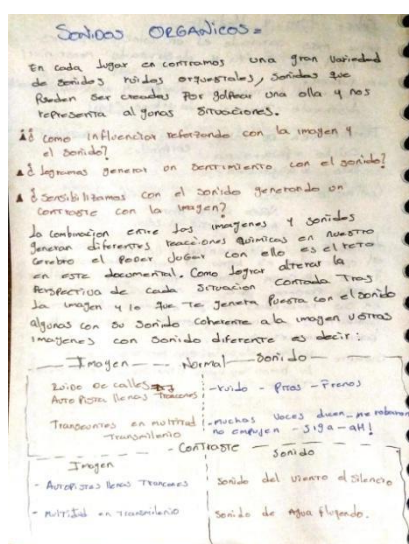 SONIDOS ORGANICOS=
En cada lugar en contramos una gran variedad
de sonidos ruidos orquestales, sonidos que
Pueden ser creados Por golpear una olla y nos
representa algunas situaciones.
¿ como influenciar reforzando con la imagen y
el sonido?
¿ logramos generar un sentimiento con el sonido?
¿ sensibilizamos con el sonido generando un
contraste con la imagen?
La combinacion entre las imagenes y sonidos
generan diferentes reacciones quimicas en nuestro
cerebro el Poder Jugar con ello es el reto
en este documental. Como lograr alterar la
Perspectiva de cada situacion contada Tras
La imagen y lo que te genera puesta con el sonido
algunas con su sonido coherente a la imagen y otras
imagenes con sonido diferente es decir:
Imagen — Normal — Sonido
Ruido De calles
Auto Pistas llenas Trancones
- ruido - Pitos - Frenos
Transeuntes en multitud
Transmilenio
- muchas voces dicen me robaron
no empujen - siga - aH!
CONTRASTE
Imagen
Sonido
- AutoPistas llenas Trancones
Sonido del viento el silencio
- Multitud en Transmilenio
Sonido de Agua fluyendo.